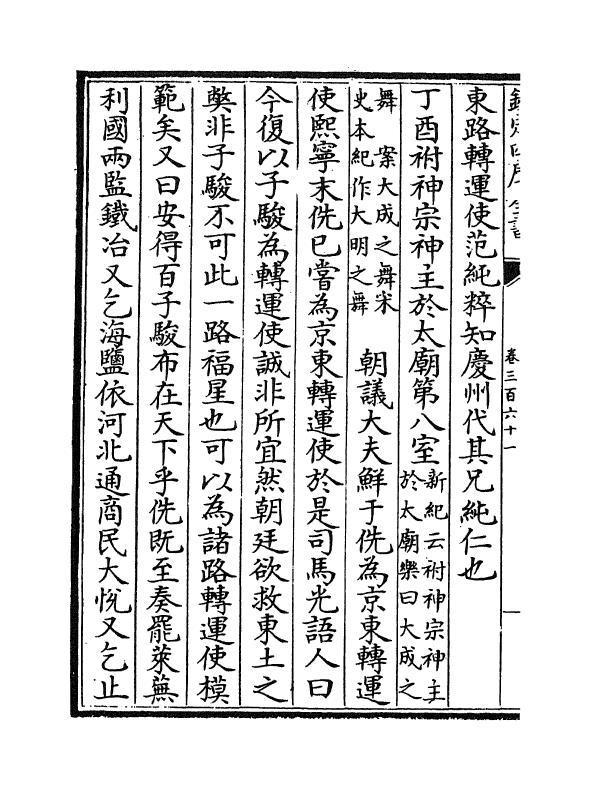 欽定四庫全書
卷三百六十一
東路轉運使范純粹知慶州代其兄純仁也
丁酉祔神宗神主於太廟第八室新紀云祔神宗神主於太廟樂曰大成之
舞案大成之舞宋史本紀作大明之舞朝議大夫鮮于侁為京東轉運
使熙寧末侁已嘗為京東轉運使於是司馬光語人曰
今復以子駿為轉運使誠非所宜然朝廷欲救東土之
弊非子駿不可此一路福星也可以為諸路轉運使模
範矣又曰安得百子駿布在天下乎侁既至奏罷萊蕪
利國兩監鐵冶又乞海鹽依河北通商民大悅又乞止